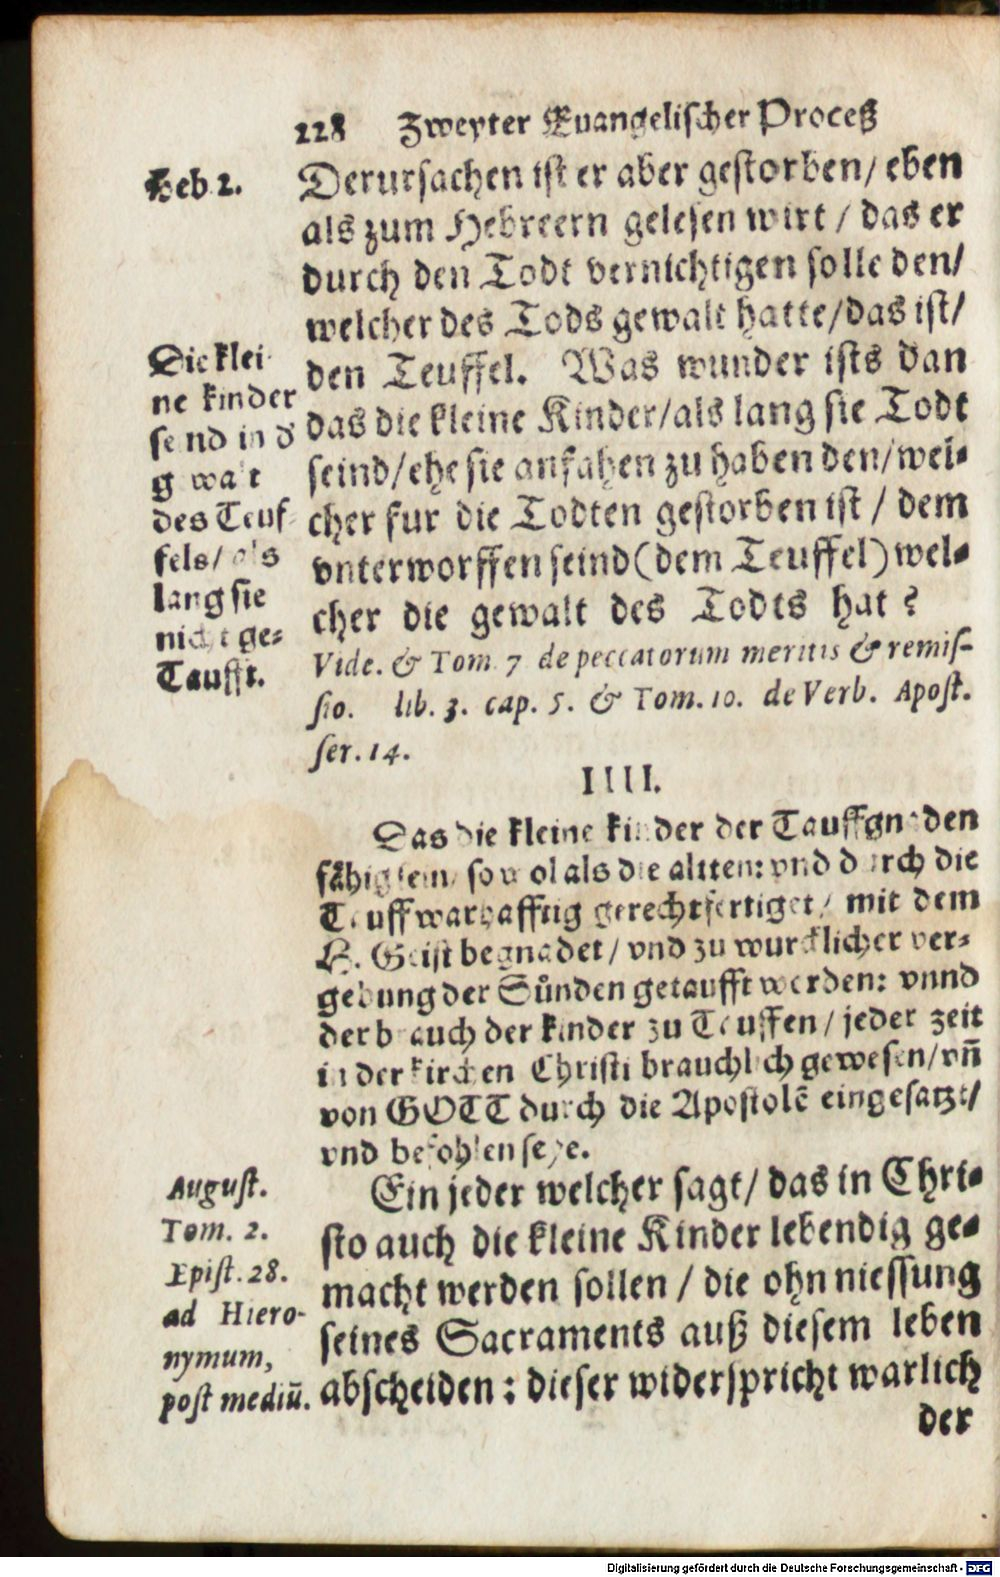 228 Zweyter Euangelischer Proceß
Heb 2.
Derursachen ist er aber gestorben / eben
als zum Hebreern gelesen wirt / das er
durch den Todt vernichtigen solle den /
welcher des Tods gewalt hatte / das ist /
den Teuffel. Was wunder ists dan
das die kleine Kinder / als lang sie Todt
seind / ehe sie anfahen zu haben den / wel-
cher fur die Todten gestorben ist / dem
vnterworffen seind (dem Teuffel) wel-
cher die gewalt des Todts hat ?
Vide. & Tom 7 de peccatorum meritis & remis-
sio. lib. 3. cap. 5. & Tom. 10. de Verb. Apost.
ser. 14.
Die klei-
ne kinder
seind in d'
gwalt
des Teuf-
fels / als
lang sie
nicht ge-
Taufft.
IIII.
Das die kleine kinder der Tauffgnaden
fähig sein / sowol als die altten: vnd durch die
Tauff warhafftig gerechtfertiget / mit dem
H. Geist begnadet / vnd zu wurcklicher ver-
gebung der Sünden getaufft werden: vnnd
der brauch der kinder zu Tauffen / jeder zeit
in der kirchen Christi brauchlich gewesen / vn̄
von GOTT durch die Apostolē eingesatzt /
vnd befohlen seye.
Ein jeder welcher sagt / das in Chri-
sto auch die kleine Kinder lebendig ge-
macht werden sollen / die ohn niessung
seines Sacraments auß diesem leben
abscheiden : dieser widerspricht warlich
der
August.
Tom. 2.
Epist. 28.
ad Hiero-
nymum,
post mediū.
Digitalisierung gefördert durch die Deutsche Forschungsgemeinschaft - DFG